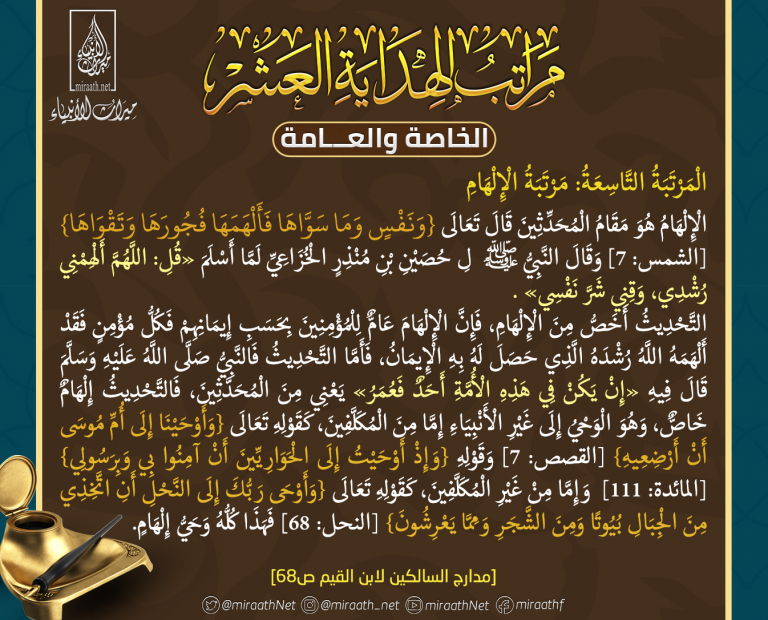 مَرَاتِبُ الهِدَايَةِ العَشْرِ
miraath.net
مِيرَاثُ الأَنْبِيَاء
الخاصة والعـــامة
الْمَرْتَبَةُ التَّاسِعَةُ: مَرْتَبَةُ الْإِلْهَامِ
الْإِلْهَامُ هُوَ مَقَامُ الْمُحَدَّثِينَ قَالَ تَعَالَى {وَنَفْسٍ وَمَا سَوَّاهَا فَأَلْهَمَهَا فُجُورَهَا وَتَقْوَاهَا}
[الشمس: 7] وَقَالَ النَّبِيُّ ﷺ لِ حُصَيْنِ بْنِ مُنْذِرٍ الْخُزَاعِيِّ لَمَّا أَسْلَمَ «قُلِ: اللَّهُمَّ أَلْهِمْنِي
رُشْدِي، وَقِنِي شَرَّ نَفْسِي» .
التَّحْدِيثُ أَخَصُّ مِنَ الْإِلْهَامِ، فَإِنَّ الْإِلْهَامَ عَامٌّ لِلْمُؤْمِنِينَ بِحَسَبِ إِيمَانِهِمْ فَكُلُّ مُؤْمِنٍ فَقَدْ
أَلْهَمَهُ اللَّهُ رُشْدَهُ الَّذِي حَصَلَ لَهُ بِهِ الْإِيمَانُ، فَأَمَّا التَّحْدِيثُ فَالنَّبِيُّ صَلَّى اللَّهُ عَلَيْهِ وَسَلَّمَ
قَالَ فِيهِ «إِنْ يَكُنْ فِي هَذِهِ الْأُمَّةِ أَحَدٌ فَعُمَرُ» يَعْنِي مِنَ الْمُحَدَّثِينَ، فَالتَّحْدِيثُ إِلْهَامٌ
خَاصٌّ، وَهُوَ الْوَحْيُ إِلَى غَيْرِ الْأَنْبِيَاءِ إِمَّا مِنَ الْمُكَلَّفِينَ، كَقَوْلِهِ تَعَالَى {وَأَوْحَيْنَا إِلَى أُمِّ مُوسَى
أَنْ أَرْضِعِيهِ} [القصص: 7] وَقَوْلِهِ {وَإِذْ أَوْحَيْتُ إِلَى الْحَوَارِيِّينَ أَنْ آمِنُوا بِي وَبِرَسُولِي}
[المائدة: 111] وَإِمَّا مِنْ غَيْرِ الْمُكَلَّفِينَ، كَقَوْلِهِ تَعَالَى {وَأَوْحَى رَبُّكَ إِلَى النَّحْلِ أَنِ اتَّخِذِي
مِنَ الْجِبَالِ بُيُوتًا وَمِنَ الشَّجَرِ وَمِمَّا يَعْرِشُونَ} [النحل: 68] فَهَذَا كُلُّهُ وَحْيُ إِلْهَامٍ.
[مدارج السالكين لابن القيم ص68]
@miraathNet @miraath_net miraathNet miraathf